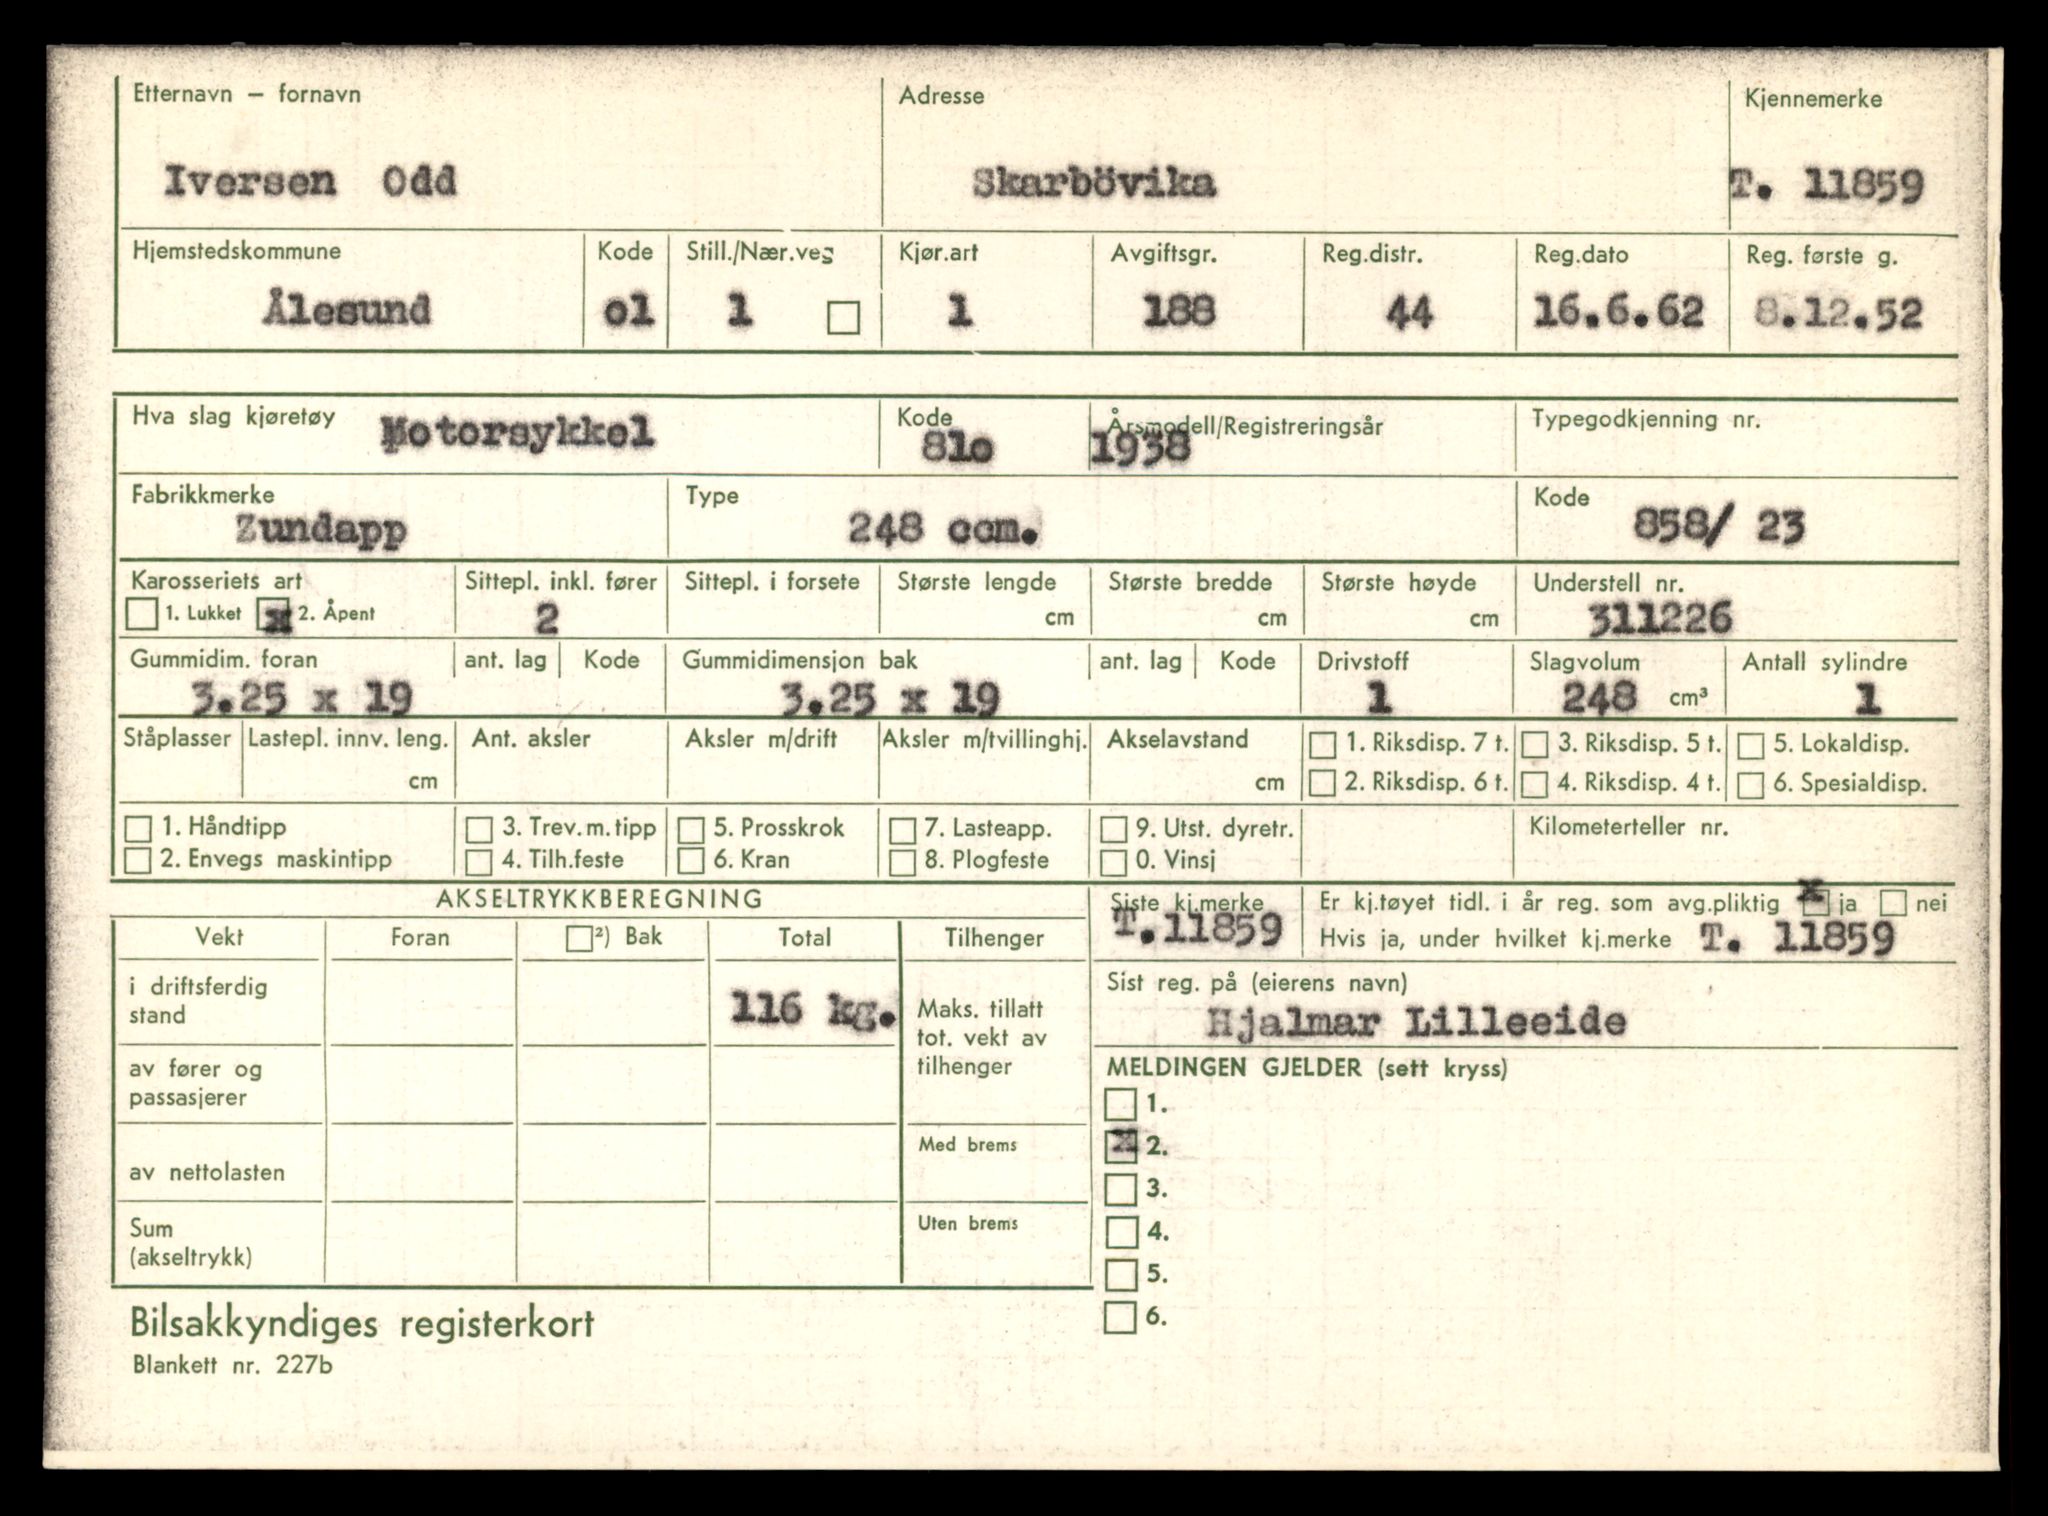 Etternavn – fornavn Adresse Kjennemerke
Iversen Odd Skarbövika T. 11859
Hjemstedskommune Kode Still./Nær.veg Kjør.art Avgiftsgr. Reg.distr. Reg.dato Reg. første g.
Ålesund o1 1 1 188 44 16.6.62 8.12.52
Hva slag kjøretøy Motorsykkel Kode 81o Årsmodell/Registreringsår 1938 Typegodkjenning nr.
Fabrikkmerke Type Kode
Zundapp 248 ccm. 858/ 23
Karosseriets art Sittepl. inkl. fører Sittepl. i forsete Største lengde Største bredde Største høyde Understell nr.
1. Lukket x 2. Åpent 2 cm cm cm 311226
Gummidim. foran ant. lag Kode Gummidimensjon bak ant. lag Kode Drivstoff Slagvolum Antall sylindre
3.25 x 19 3.25 x 19 1 248 cm³ 1
Ståplasser Lastepl. innv. leng. Ant. aksler Aksler m/drift Aksler m/tvillinghj. Akselavstand 1. Riksdisp. 7 t. 3. Riksdisp. 5 t. 5. Lokaldisp.
cm cm 2. Riksdisp. 6 t. 4. Riksdisp. 4 t. 6. Spesialdisp.
1. Håndtipp 3. Trev.m.tipp 5. Prosskrok 7. Lasteapp. 9. Utst. dyretr. Kilometerteller nr.
2. Envegs maskintipp 4. Tilh.feste 6. Kran 8. Plogfeste 0. Vinsj
AKSELTRYKKBEREGNING
Vekt Foran ²) Bak Total Tilhenger
i driftsferdig
stand 116 kg.
av fører og
passasjerer
av nettolasten
Sum
(akseltrykk)
Maks. tillatt
tot. vekt av
tilhenger
Med brems
Uten brems
Siste kj.merke
T.11859
Er kj.tøyet tidl. i år reg. som avg.pliktig x ja nei
Hvis ja, under hvilket kj.merke T. 11859
Sist reg. på (eierens navn)
Hjalmar Lilleeide
MELDINGEN GJELDER (sett kryss)
1.
x 2.
3.
4.
5.
6.
Bilsakkyndiges registerkort
Blankett nr. 227b